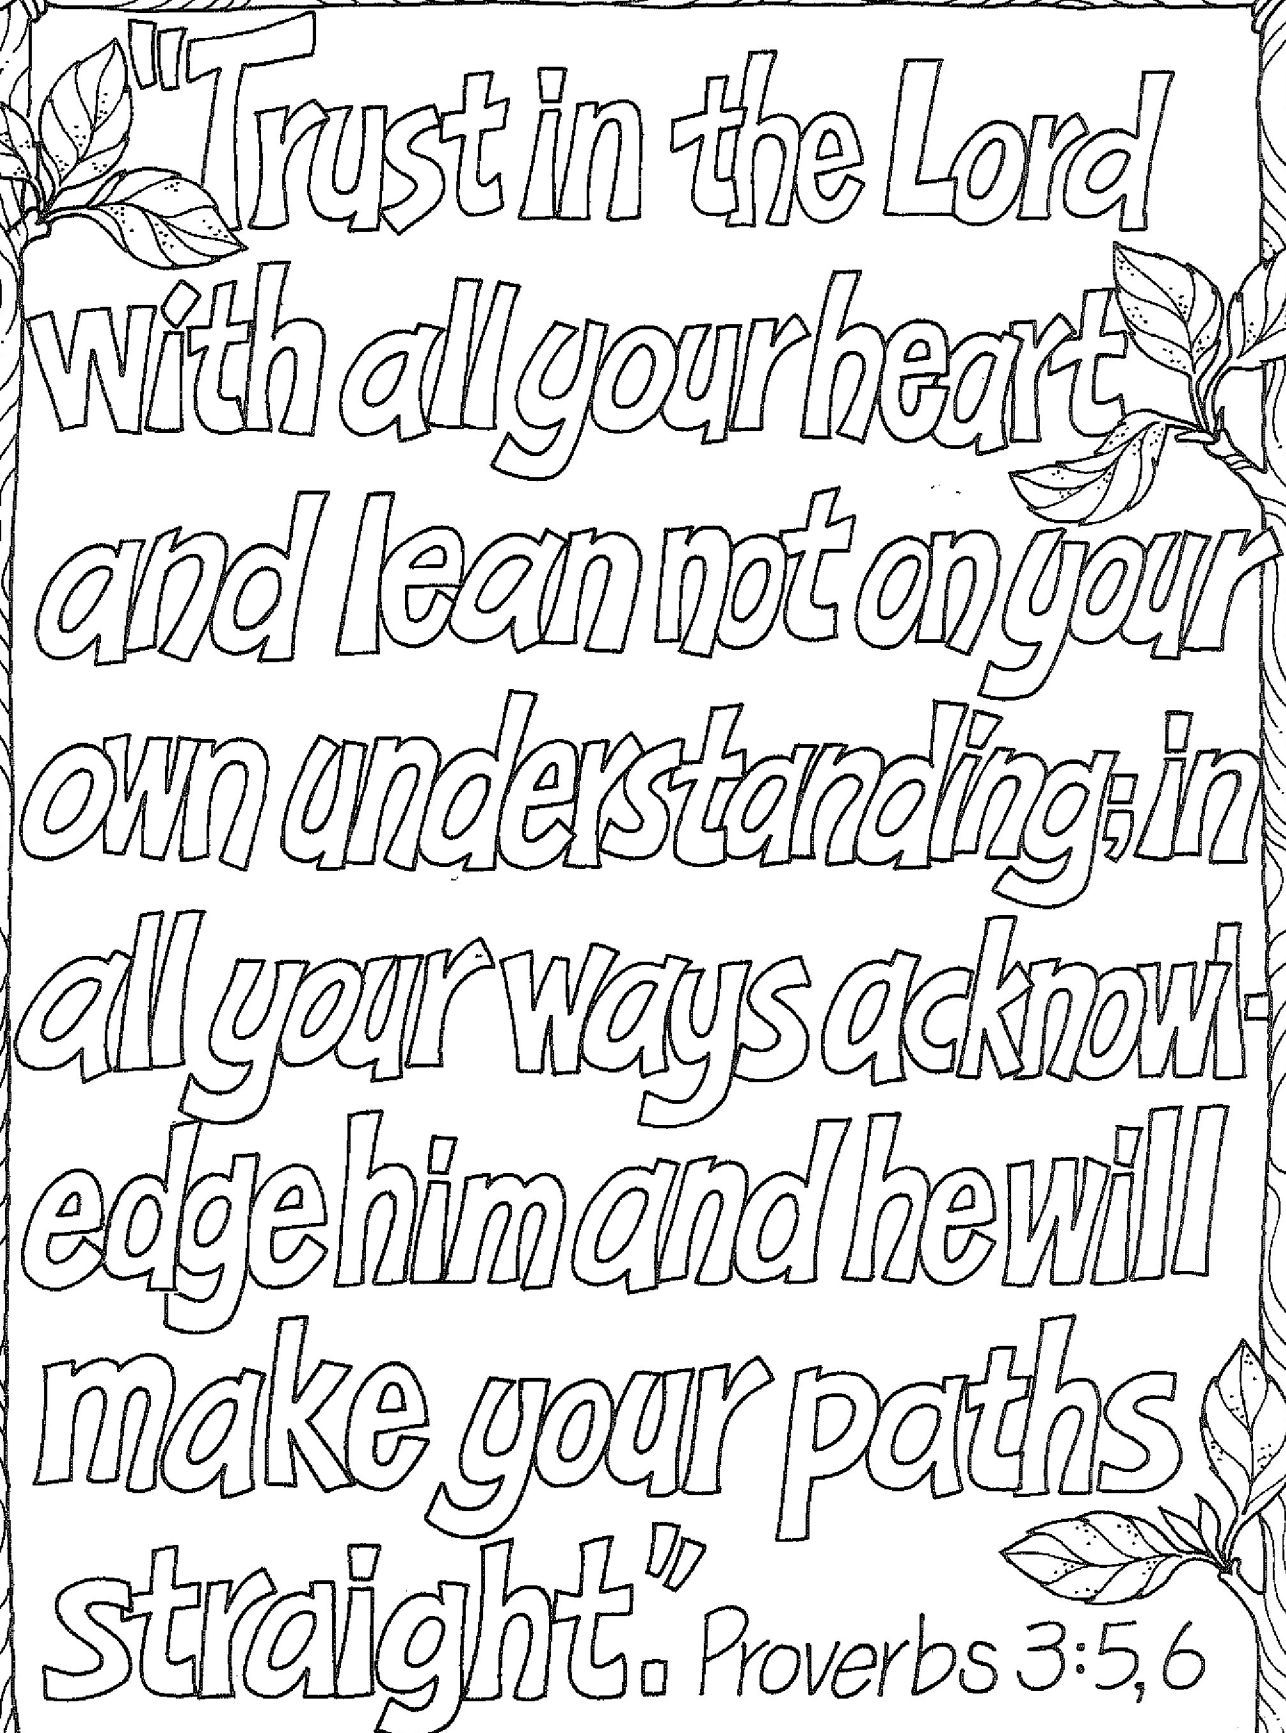 "Trust in the Lord
with all your heart
and lean not on your
own understanding; in
all your ways acknowl-
edge him and he will
make your paths
straight." Proverbs 3:5,6